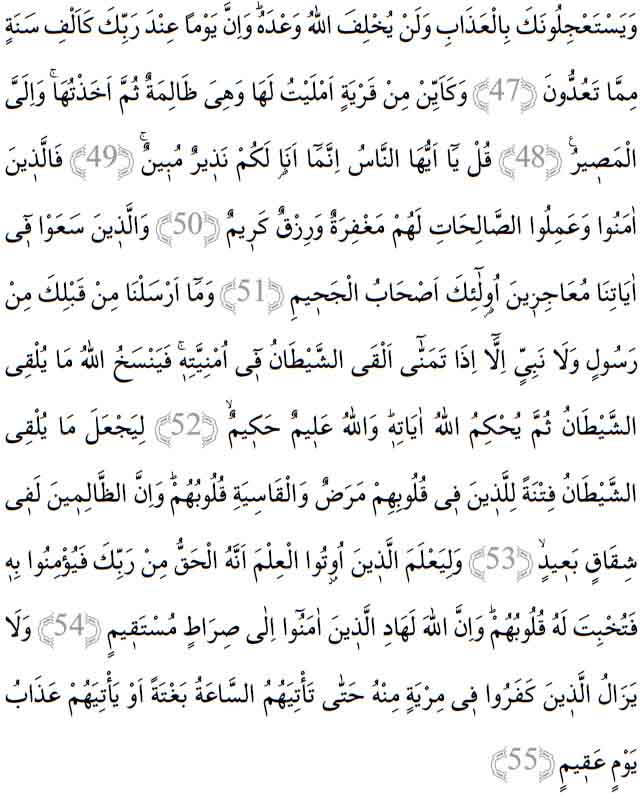 وَيَسْتَعْجِلُونَكَ بِالْعَذَابِ وَلَنْ يُخْلِفَ اللّٰهُ وَعْدَهُۜ وَاِنَّ يَوْمًا عِنْدَ رَبِّكَ كَاَلْفِ سَنَةٍ
مِمَّا تَعُدُّونَ ﴿47﴾ وَكَاَيِّنْ مِنْ قَرْيَةٍ اَمْلَيْتُ لَهَا وَهِىَ ظَالِمَةٌ ثُمَّ اَخَذْتُهَاۚ وَاِلَىَّ
الْمَص۪يرُ۟ ﴿48﴾ قُلْ يَٓا اَيُّهَا النَّاسُ اِنَّمَٓا اَنَا۬ لَكُمْ نَذ۪يرٌ مُب۪ينٌۚ ﴿49﴾ فَالَّذ۪ينَ
اٰمَنُوا وَعَمِلُوا الصَّالِحَاتِ لَهُمْ مَغْفِرَةٌ وَرِزْقٌ كَر۪يمٌ ﴿50﴾ وَالَّذ۪ينَ سَعَوْا ف۪ٓى
اٰيَاتِنَا مُعَاجِز۪ينَ اُو۬لٰٓئِكَ اَصْحَابُ الْجَح۪يمِ ﴿51﴾ وَمَٓا اَرْسَلْنَا مِنْ قَبْلِكَ مِنْ
رَسُولٍ وَلَا نَبِىٍّ اِلَّٓا اِذَا تَمَنّٰٓى اَلْقَى الشَّيْطَانُ ف۪ٓى اُمْنِيَّتِه۪ۚ فَيَنْسَخُ اللّٰهُ مَا يُلْقِى
الشَّيْطَانُ ثُمَّ يُحْكِمُ اللّٰهُ اٰيَاتِه۪ۜ وَاللّٰهُ عَل۪يمٌ حَك۪يمٌۙ ﴿52﴾ لِيَجْعَلَ مَا يُلْقِى
الشَّيْطَانُ فِتْنَةً لِلَّذ۪ينَ ف۪ى قُلُوبِهِمْ مَرَضٌ وَالْقَاسِيَةِ قُلُوبُهُمْۜ وَاِنَّ الظَّالِم۪ينَ لَف۪ى
شِقَاقٍ بَع۪يدٍۙ ﴿53﴾ وَلِيَعْلَمَ الَّذ۪ينَ اُو۫تُوا الْعِلْمَ اَنَّهُ الْحَقُّ مِنْ رَبِّكَ فَيُؤْمِنُوا بِه۪
فَتُخْبِتَ لَهُ قُلُوبُهُمْۜ وَاِنَّ اللّٰهَ لَهَادِ الَّذ۪ينَ اٰمَنُٓوا اِلٰى صِرَاطٍ مُسْتَق۪يمٍ ﴿54﴾ وَلَا
يَزَالُ الَّذ۪ينَ كَفَرُوا ف۪ى مِرْيَةٍ مِنْهُ حَتّٰى تَأْتِيَهُمُ السَّاعَةُ بَغْتَةً اَوْ يَأْتِيَهُمْ عَذَابُ
يَوْمٍ عَق۪يمٍ ﴿55﴾